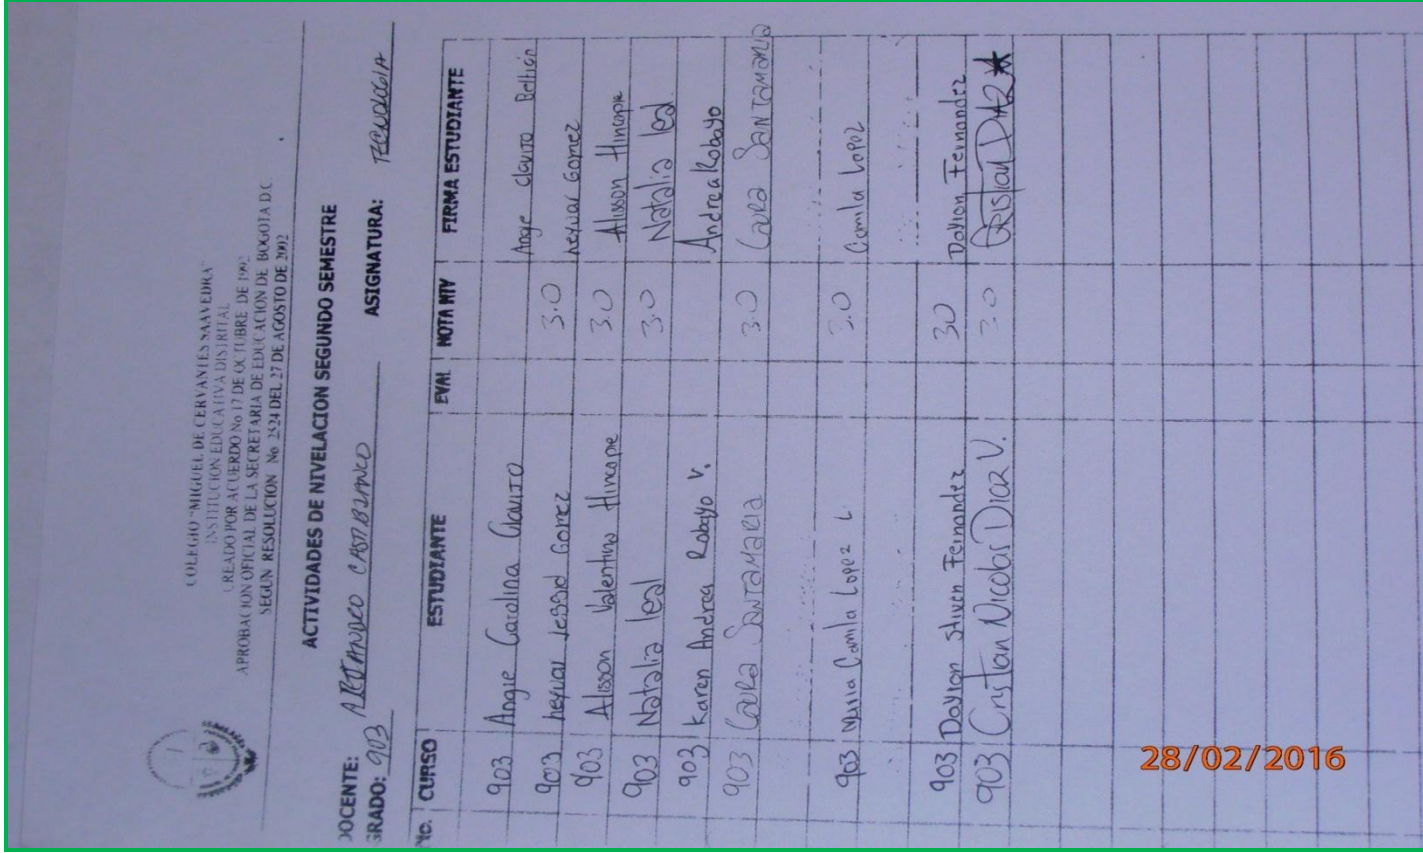 COLEGIO "MIGUEL DE CERVANTES SAAVEDRA"
INSTITUCION EDUCATIVA DISTRITAL
CREADO POR ACUERDO No 17 DE OCTUBRE DE 1992
APROBACION OFICIAL DE LA SECRETARIA DE EDUCACION DE BOGOTA D.C
SEGUN RESOLUCION No 2524 DEL 27 DE AGOSTO DE 2002
ACTIVIDADES DE NIVELACION SEGUNDO SEMESTRE
DOCENTE: CASTIBLANCO
GRADO: 903 ASIGNATURA: TECNOLOGIA
No. CURSO ESTUDIANTE EVAL NOTA NIV FIRMA ESTUDIANTE
903 Angie Carolina Clavijo Angie Clavijo
903 Gomez 3.0 Gomez
903 Alisson Valentina Hincapie 3.0 Alisson Hincapie
903 Natalia leal 3.0 Natalia leal
903 Karen Andrea Robayo V. Andrea Robayo
903 Laura Santamaria 3.0 Laura Santamaria
903 Camila Lopez L 3.0 Camila Lopez
903 Stiven Fernandez 30 Fernandez
903 Cristian Nicolas Diaz V. 3.0 Cristian Diaz
28/02/2016